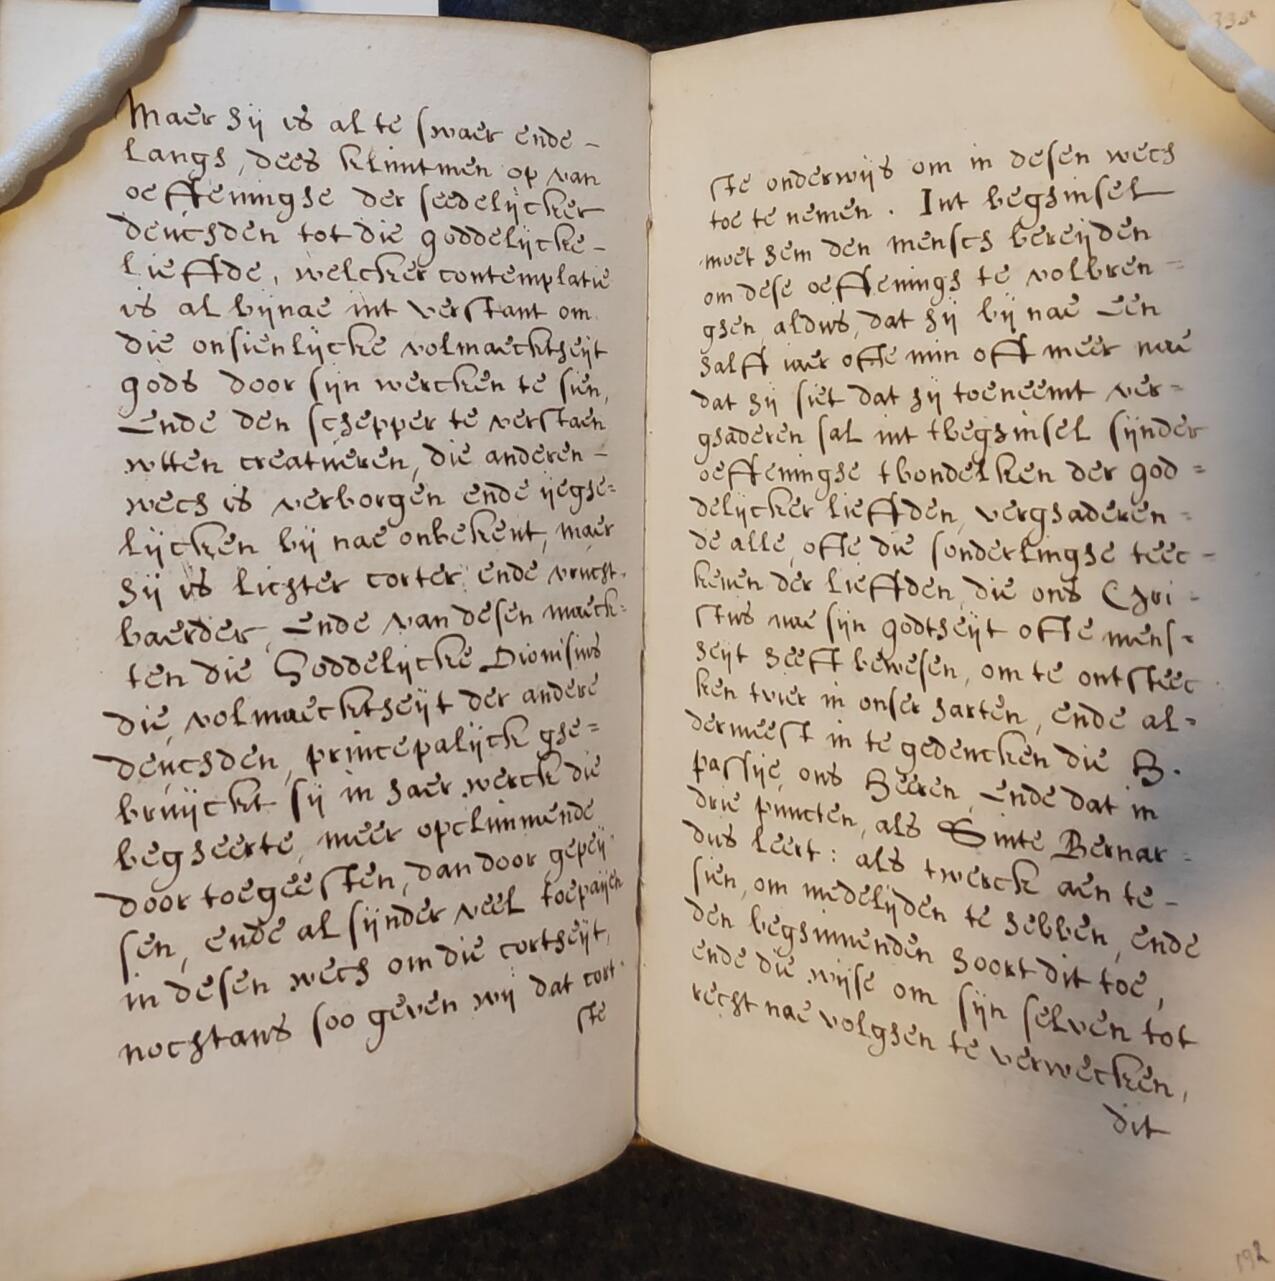 Maer hij is al te swaer ende -
langh, dees klimtmen op van
oeffeninghe der seedelijcker
deuchden tot die goddelijcke -
lieffde, welcker contemplatie
is al bijnae int verstant om
die onsienlijcke volmaecktheijt
gods door sijn wercken te sien,
Ende den schepper te verstaen
wtten creatueren, die anderen -
wech is verborgen ende ijeghe=
lijcken bij nae onbekent, maer
hij is lichter corter ende vrucht-
baerder, Ende van desen maeck=
ten die Goddelijcke Dionisius
die volmaecktheijt der andere
deuchden, principalijck ghe=
bruijckt sij in haer werck die
begheerte, meer opclimmende
door toegeesten, dan door gepeij
sen, ende al sijnder veel toepaijen
in desen wech om die cortheijt,
nochtans soo geven wij dat cort-
ste
335
ste onderwijs om in desen wech
toe te nemen. Int beghinsel
moet hem den mensch bereijden
om dese oeffeningh te volbren =
ghen, aldus, dat hij bij nae Een
halff iaer offte min oft meer nae
dat hij siet dat hij toeneemt ver=
ghaderen sal int tbeghinsel sijnder
oeffeninghe tbondelken der god =
delijcker lieffden, verghaderen =
de alle, offte die sonderlinghe teec -
kenen der lieffden, die ons Chri -
stus nae sijn godtheijt offte mens-
heijt heeft bewesen, om te ontsteec
ken tvier in onser harten, ende al=
dermeest in te gedencken die H.
passije ons Heeren, Ende dat in
drie puncten, als Sinte Bernar =
dus leert: als twerck aen te -
sien, om medelijden te hebben, ende
den beghinnenden hoort dit toe,
ende die wijse om sijn selven tot
recht nae volghen te verwecken,
dit
192